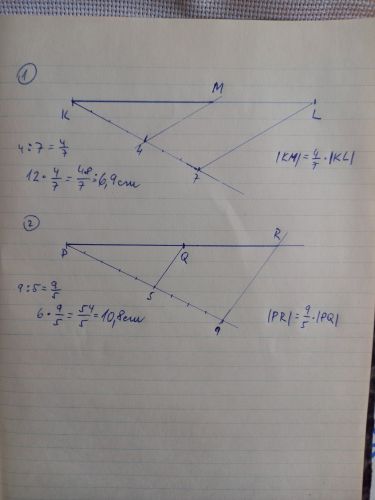 1
K M L
4 7
4:7 = 4/7
12 · 4/7 = 48/7 ≐ 6,9 cm
|KM| = 4/7 · |KL|
2
P Q R
5 9
9:5 = 9/5
6 · 9/5 = 54/5 = 10,8 cm
|PR| = 9/5 · |PQ|